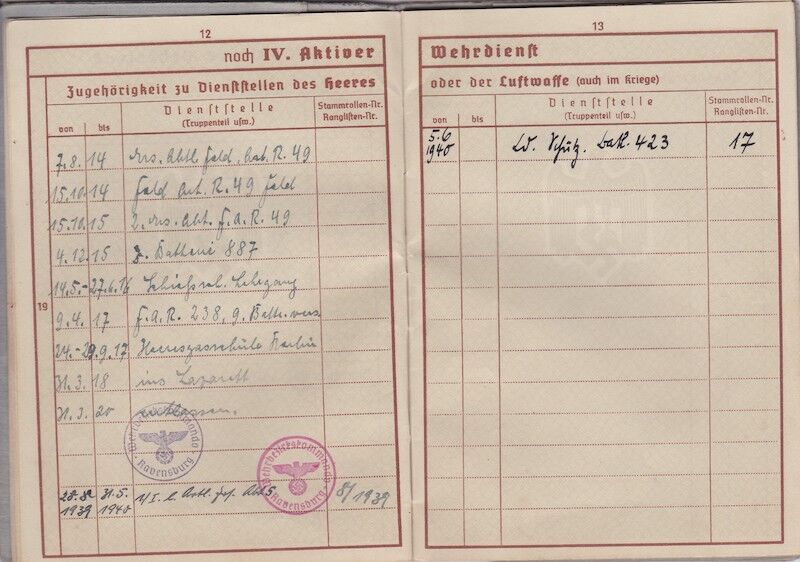 12
noch IV. Aktiver
Zugehörigkeit zu Dienststellen des Heeres
von bis Dienststelle (Truppenteil usw.) Stammrollen-Nr. Ranglisten-Nr.
19
7.8. 14 Ers. Abtl. Feld. Art. R. 49
15.10. 14 Feld Art. R. 49 Feld
15.10. 15 2. Ers. Abt. F. a. R. 49
4.12. 15 Batterie 887
14.5.- 27.6.16 Schiesssch. Lehrgang
9.4. 17 F. a. R. 238, 9. Battr. vers
24.- 29.9.17 Heeresgasschule Berlin
31.3. 18 ins Lazarett
31.3. 20 entlassen.
Wehrbezirkskommando Ravensburg
Wehrbezirkskommando Ravensburg
1939 31.5. 1940 8/1939
13
Wehrdienst
oder der Luftwaffe (auch im Kriege)
von bis Dienststelle (Truppenteil usw.) Stammrollen-Nr. Ranglisten-Nr.
5.6 1940 Ld. Schütz. Batl. 423 17